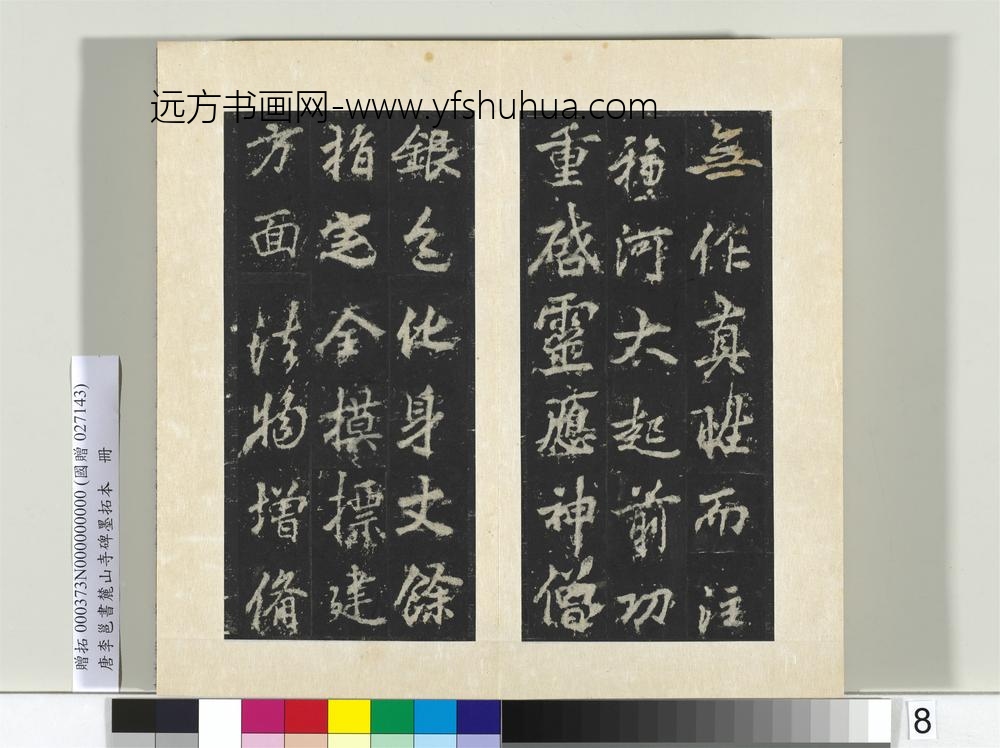 远方书画网-www.yfshuhua.com
無作真而注
福河大起前功
重啓靈應神僧
銀色化身丈餘
指定全摸摽建
方面法物增備
贈拓 000373N000000000 (國贈 027143)
唐李邕書麓山寺碑墨拓本 冊
8